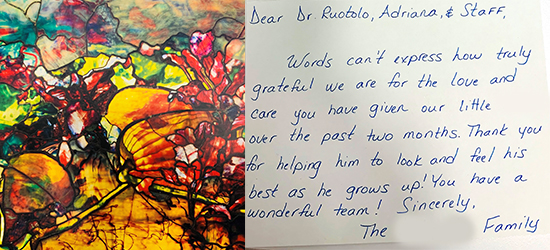 Dear Dr. Ruotolo, Adriana, & Staff,
Words can't express how truly
grateful we are for the love and
care you have given our little
over the past two months. Thank you
for helping him to look and feel his
best as he grows up! You have a
wonderful team! Sincerely,
The Family